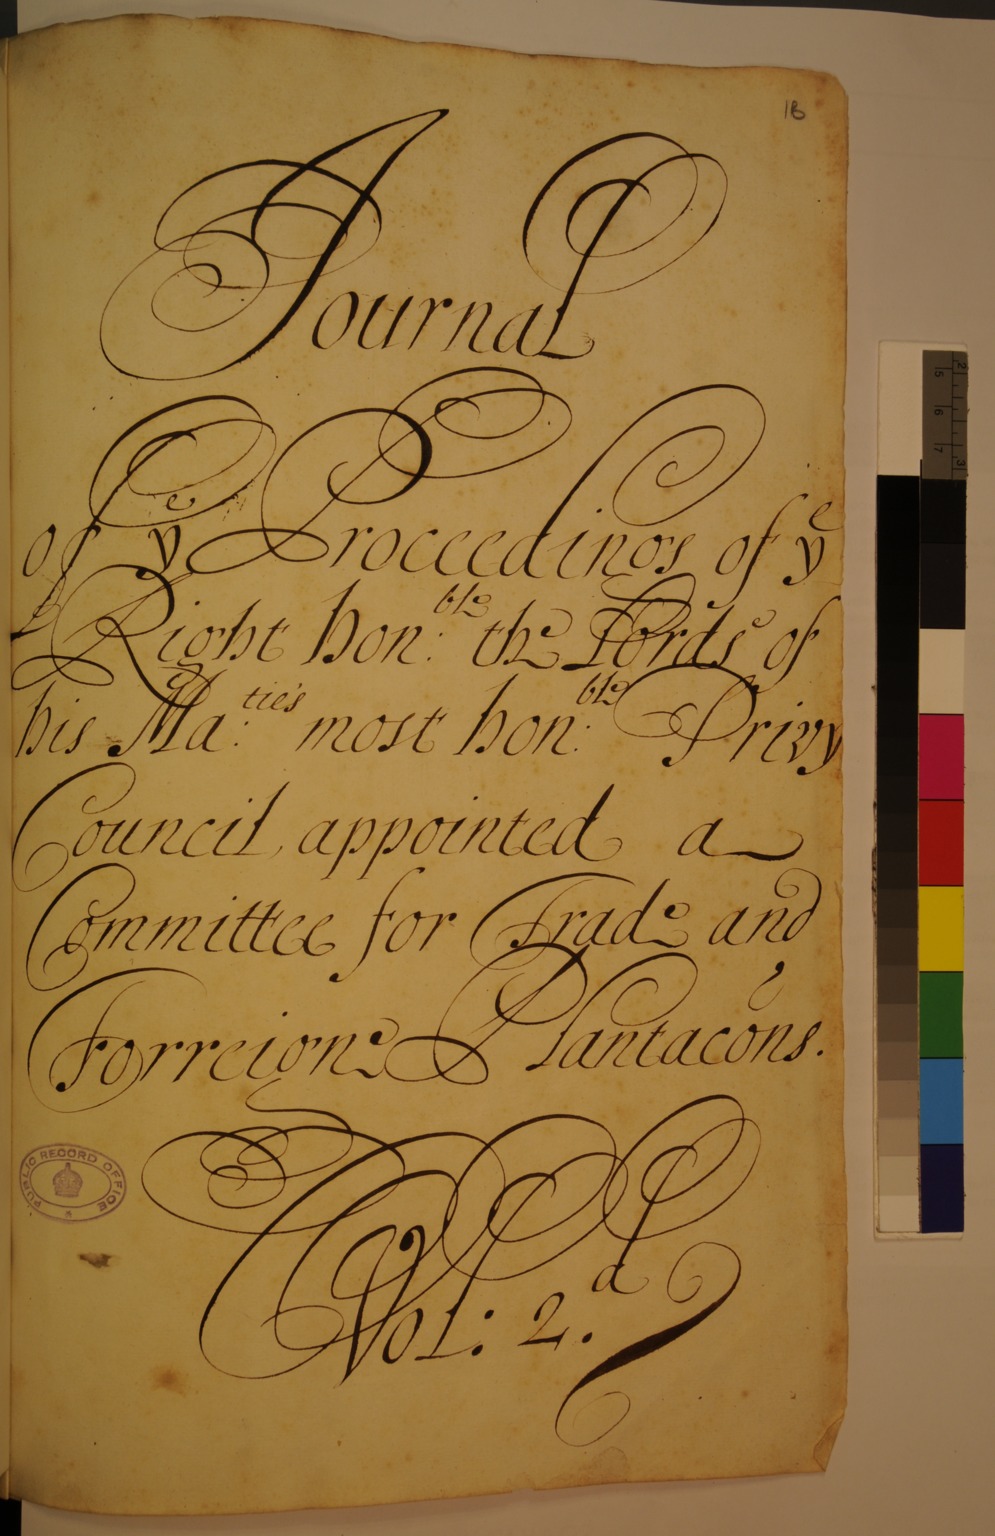 1B
Journal
of yᵉ Proceedings of yᵉ
Right hon:ᵇˡᵉ the Lords of
his Ma:ᵗⁱᵉˢ most hon:ᵇˡᵉ Privy
Council appointed a
Committee for Trade and
Forreigne Plantacons.
Vol: 2.ᵈ
PUBLIC RECORD OFFICE
2
3
5
6
7